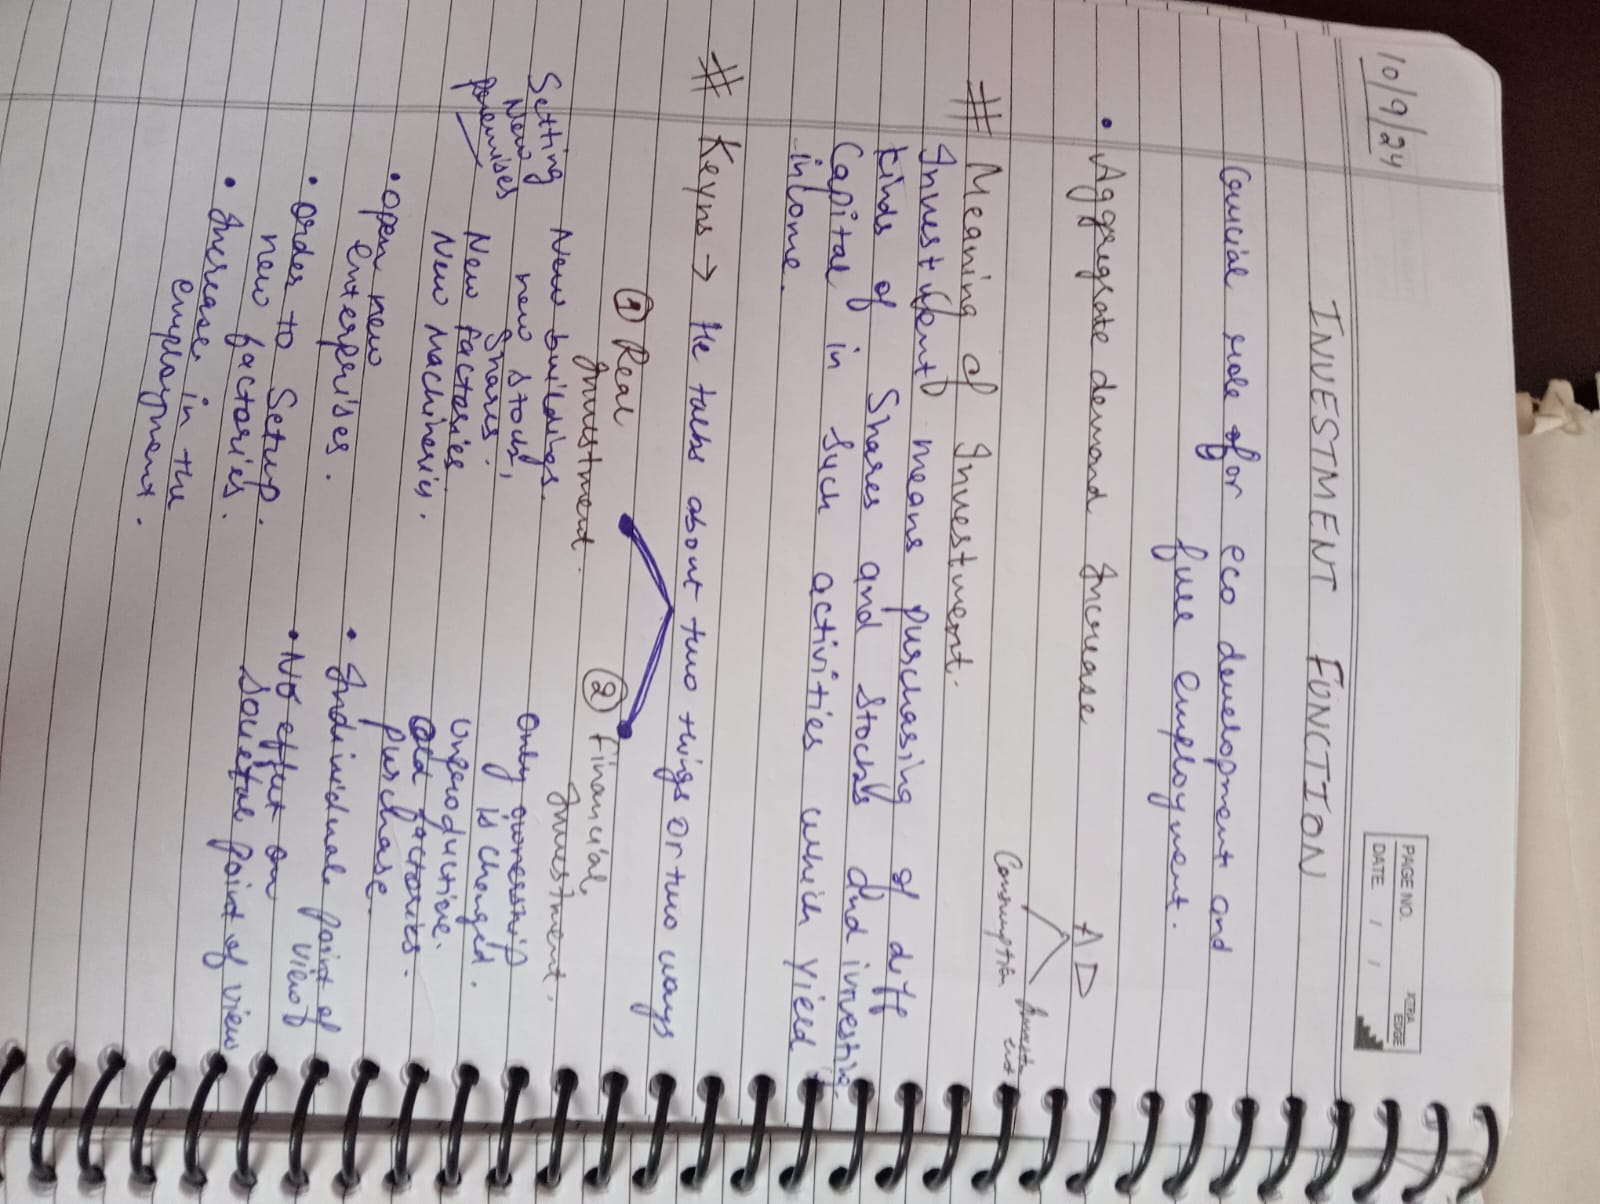 10/9/24
PAGE NO.
DATE / /
XTRA EDGE
INVESTMENT FUNCTION
Crucial role for eco development and
full employment.
• Aggregrate demand Increase
AD
Consumption
Investment
# Meaning of Investment.
Investment means purchasing of diff
kinds of Shares and Stocks And investing
Capital in such activities which yield
income.
# Keyns → He talks about two things or two ways
① Real
Investment.
Setting
New
premises
New buildings.
new stocks,
Shares.
New factories
New Machineries.
• open new
enterprises.
• order to Setup
new factories.
• Increase in the
employment.
② Financial
Investment.
Only ownership
is changed.
Unproductive.
Old factories.
purchase.
• Individual point of
view
• No effect on
Societal point of view